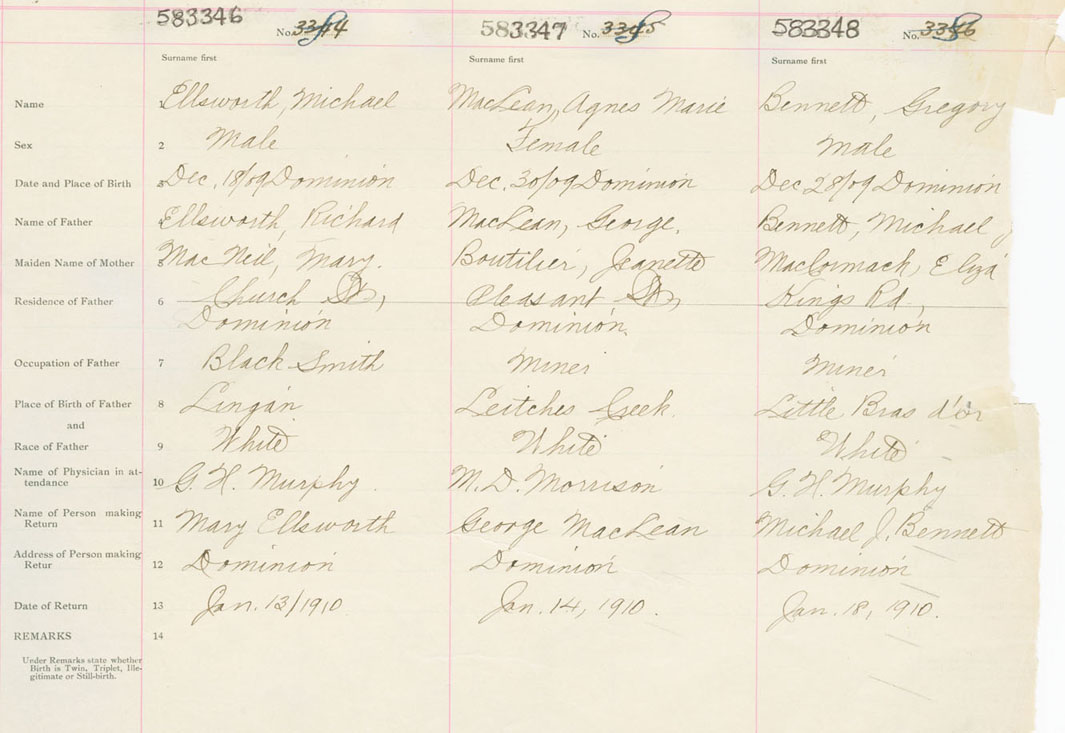 583346 No. 3344 583347 No. 3345 583348 No. 3346
Surname first Surname first Surname first
Name 1 Ellsworth, Michael MacLean, Agnes Marie Bennett, Gregory
Sex 2 Male Female Male
Date and Place of Birth 3 Dec. 18/09 Dominion Dec. 30/09 Dominion Dec 28/09 Dominion
Name of Father 4 Ellsworth, Richard MacLean, George. Bennett, Michael J
Maiden Name of Mother 5 MacNeil, Mary. Boutilier, Jeanette MacCormack, Eliza
Residence of Father 6 Church St, Pleasant St, Kings Rd,
Dominion Dominion. Dominion
Occupation of Father 7 Black Smith Miner Miner
Place of Birth of Father 8 Lingan Leitches Creek. Little Bras d'or
and
Race of Father 9 White White White
Name of Physician in at-
tendance 10 G. H. Murphy. M. D. Morrison G. H. Murphy
Name of Person making
Return 11 Mary Ellsworth George MacLean Michael J. Bennett
Address of Person making
Retur 12 Dominion Dominion Dominion
Date of Return 13 Jan. 13/1910 Jan. 14, 1910. Jan. 18, 1910.
REMARKS 14
Under Remarks state whether
Birth is Twin, Triplet, Ille-
gitimate or Still-birth.